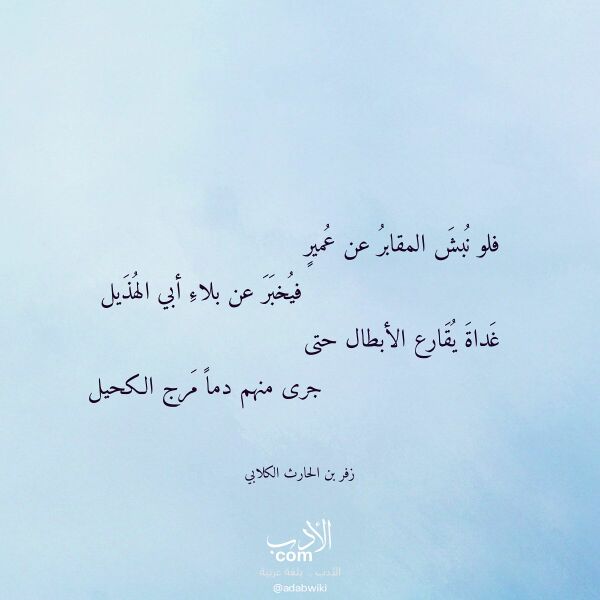 فلو نُبشَ المقابرُ عن عُميرٍ
فيُخبَرَ عن بلاءِ أبي الهُذَيل
غَداةَ يُقَارع الأبطال حتى
جرى منهم دماً مَرج الكحيل
زفر بن الحارث الكلابي
الأدب
com
الأدب .. بلغة عربية
@adabwiki